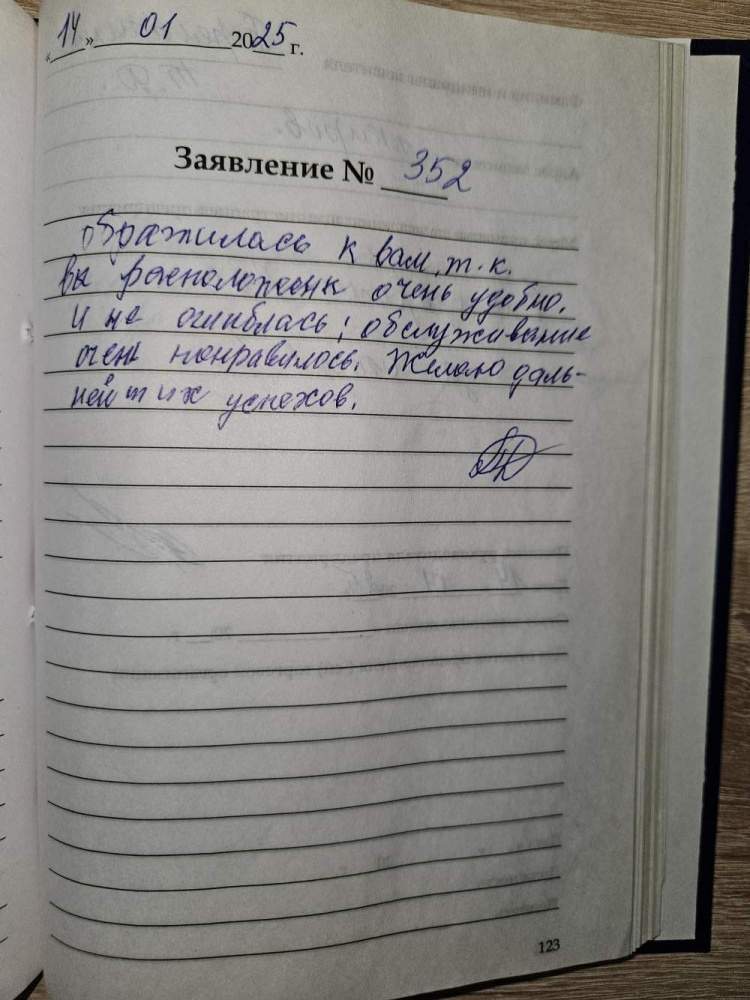 «14» 01 2025 г.
Заявление № 352
Обратилась к вам, т.к.
вы расположены очень удобно.
И не ошиблась; обслуживание
очень понравилось. Желаю даль-
нейших успехов.
123